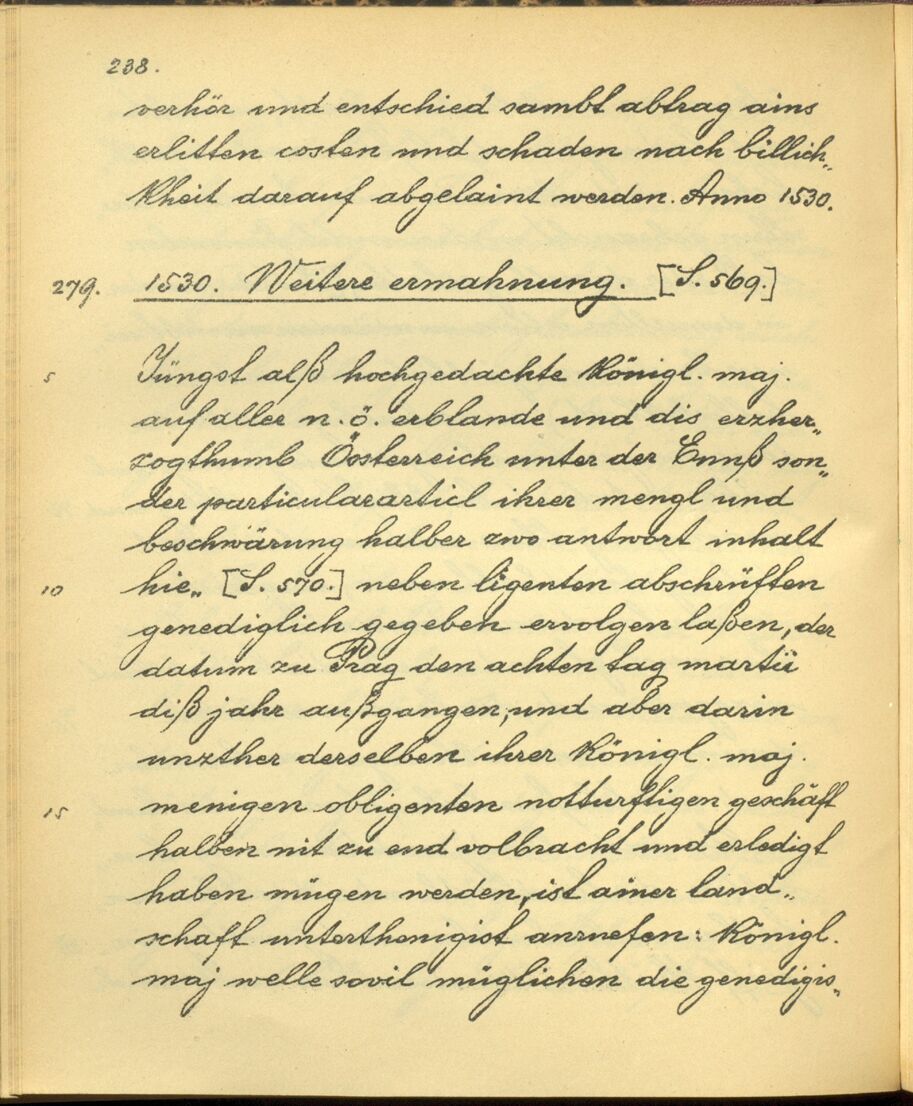 238.
verhör und entschied sambt abtrag ains
erlitten costen und schaden nach billich„
kheit darauf abgelaint werden. Anno 1530.
279. 1530. Weitere ermahnung. [S. 569.]
5 Jüngst alß hochgedachte königl. maj.
auf aller n. ö. erblande und dis erzher„
zogthumb Össterreich unter der Ennß son„
der particulararticl ihrer mengl und
beschwärung halber zwo antwort inhalt
10 hie„ [S. 570.] neben ligenten abschrüften
genediglich gegeben ervolgen laßen, der
datum zu Prag den achten tag martii
diß jahr außgangen, und aber darin
unzther derselben ihrer königl. maj.
15 menigen obligenten notturftigen geschäft
halben nit zu end volbracht und erledigt
haben mügen werden, ist ainer land„
schaft unterthenigist anruefen: königl.
maj welle sovil müglichen die genedigis„